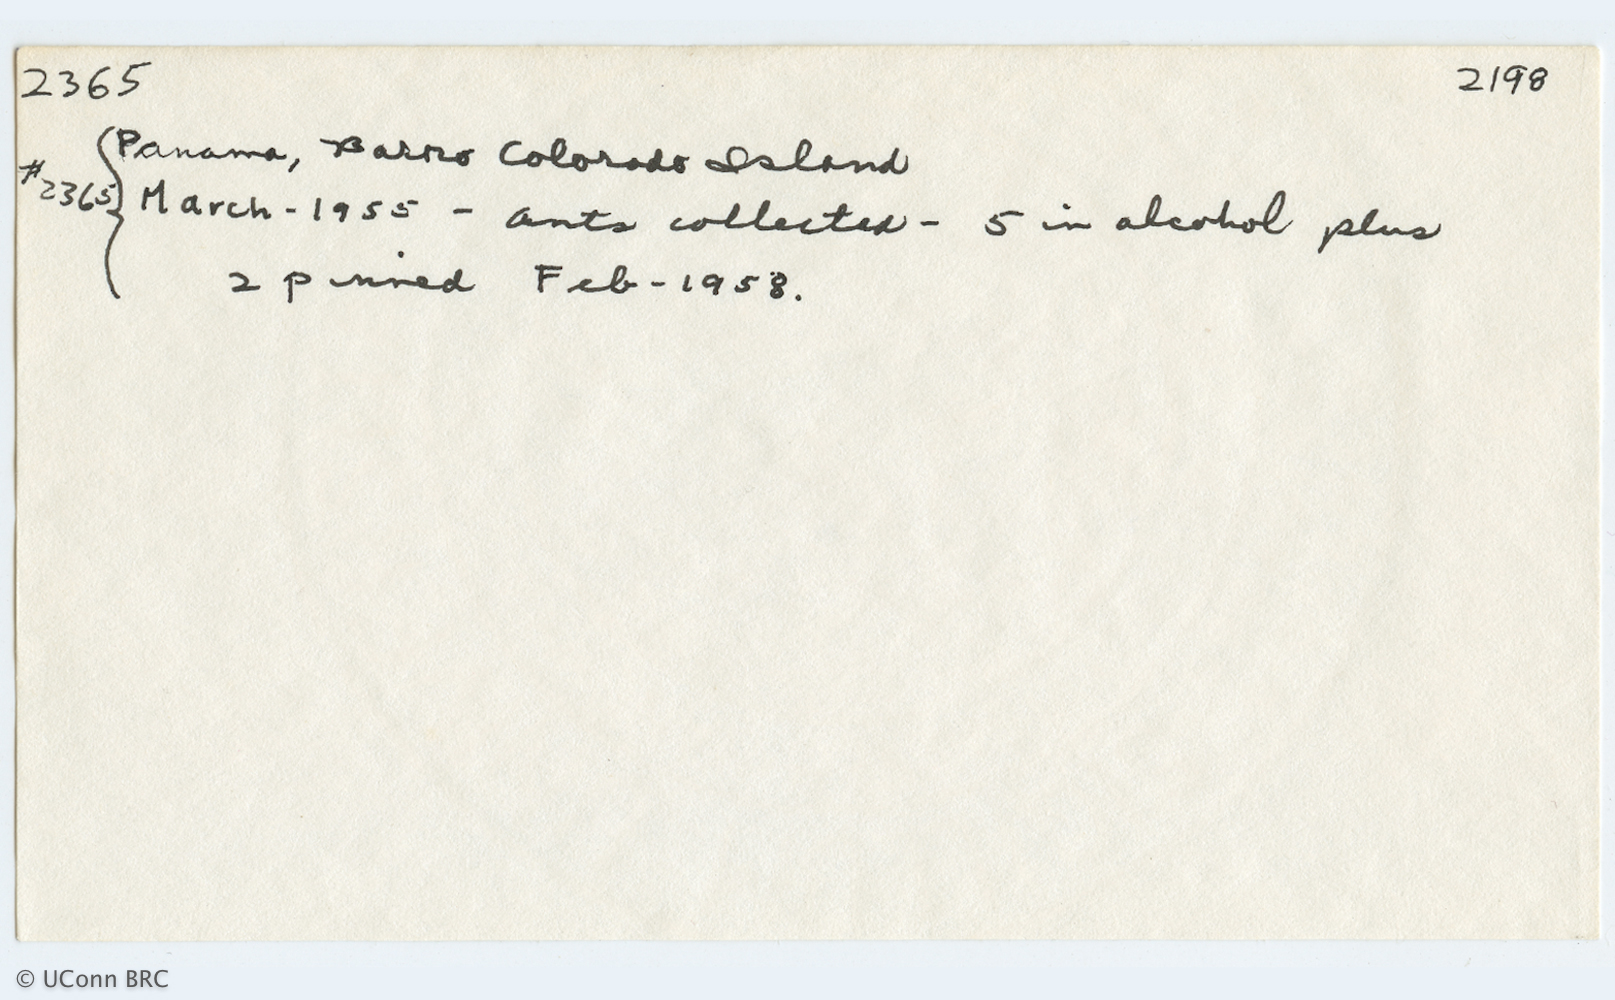 2365 2198
Panama, Barro Colorado Island
#2365 March-1955 - ants collected - 5 in alcohol plus
2 pinned Feb-1958.
© UConn BRC